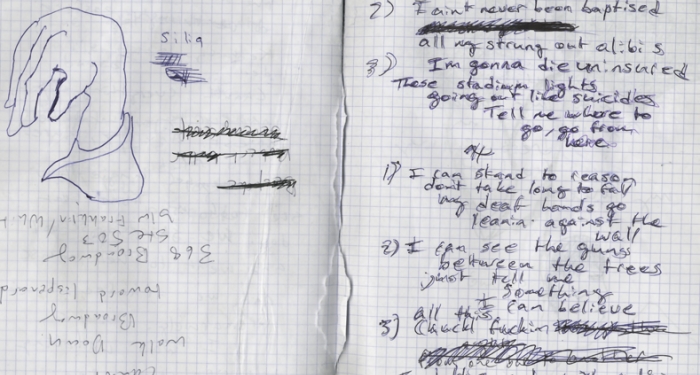 Silia
Walk Down
Broadway
toward Lispenard
368 Broadway
Ste 503
b/w Franklin/
2) I aint never been baptised
all my strung out alibis
3) I'm gonna die uninsured
These stadium lights
going out like suicides
Tell me where to
go, go from
here
1) I can stand to reason
dont take long to fall
my deaf hands go
leanin against the
wall
2) I can see the guns
between the trees
just tell me
something
I can believe
3) all this
fuckin